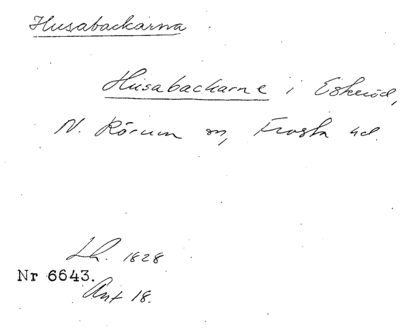 Husabackarna
Husabackarne i Eskeröd,
N. Rörum sn, Frosta hd.
Lh. 1828
Nr 6643.
Ant 18.